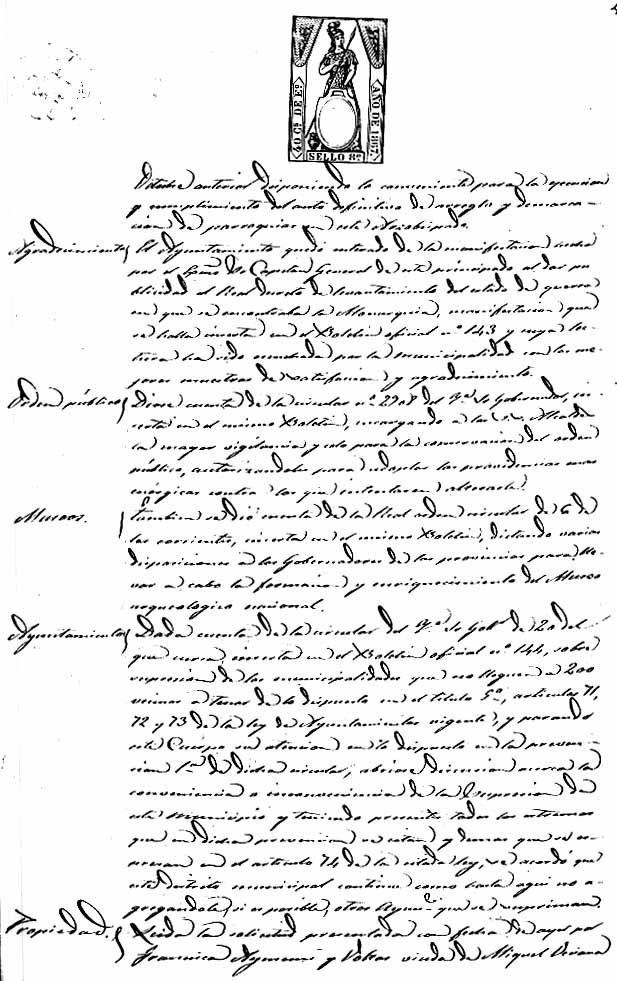 40 Cs. DE Eo.
AÑO DE 1867
SELLO 8o.
Octubre anterior disponiendo lo conveniente para la ejecucion
y cumplimiento del auto definitivo de arreglo y demarca-
cion de parroquias en este Arzobispado.
Agradecimiento
El Ayuntamiento quedó enterado de la manifestacion hecha
por el Escmo Sr. Capitan General de este principado al dar pu
blicidad al Real decreto de levantamiento del estado de guerra
en que se encontraba la Monarquia, manifestacion que
se halla inserta en el Boletin oficial nº 143 y cuya lec-
tura ha sido escuchada por la municipalidad con las me-
jores muestras de satisfaccion y agradecimiento.
Orden público
Diose cuenta de la circular nº del Gobernador, in-
serta en el mismo Boletin, encargando a los Alcaldes
la mayor vigilancia y celo para la conservacion del orden
público, autorizandoles para adoptar las providencias mas
enérgicas contra los que intentaren alterarlo.
Museos.
Tambien se dió cuenta de la Real orden circular de 6 de
los corrientes, inserta en el mismo Boletin, dictando varias
disposiciones a los Gobernadores de las provincias para lle-
var a cabo la formacion y enriquecimiento del Museo
arqueologico nacional.
Ayuntamientos
Dada cuenta de la circular del Gobr de 20 del
que cursa, inserta en el Boletin oficial nº 144, sobre
supresion de las municipalidades que no lleguen a 200
vecinos a tenor de lo dispuesto en el titulo 5º, articulos 71,
72 y 73 de la ley de Ayuntamientos vigente, y parando
este Cuerpo su atencion en lo dispuesto en la preven-
cion 1ª de dicha circular, abriose discusion acerca la
conveniencia o inconveniencia de la supresion de
este municipio y teniendo presentes todos los extremos
que en dicha prevencion se citan y demas que se es-
presan en el articulo 74 de la citada ley, se acordó que
este distrito municipal continue como hasta aqui no a-
gregandole, si es posible, otros Ayuntos que se supriman.
Propiedad.
Leida la solicitud presentada con fecha de ayer por
Francisca Aymerri y Voltas viuda de Miquel